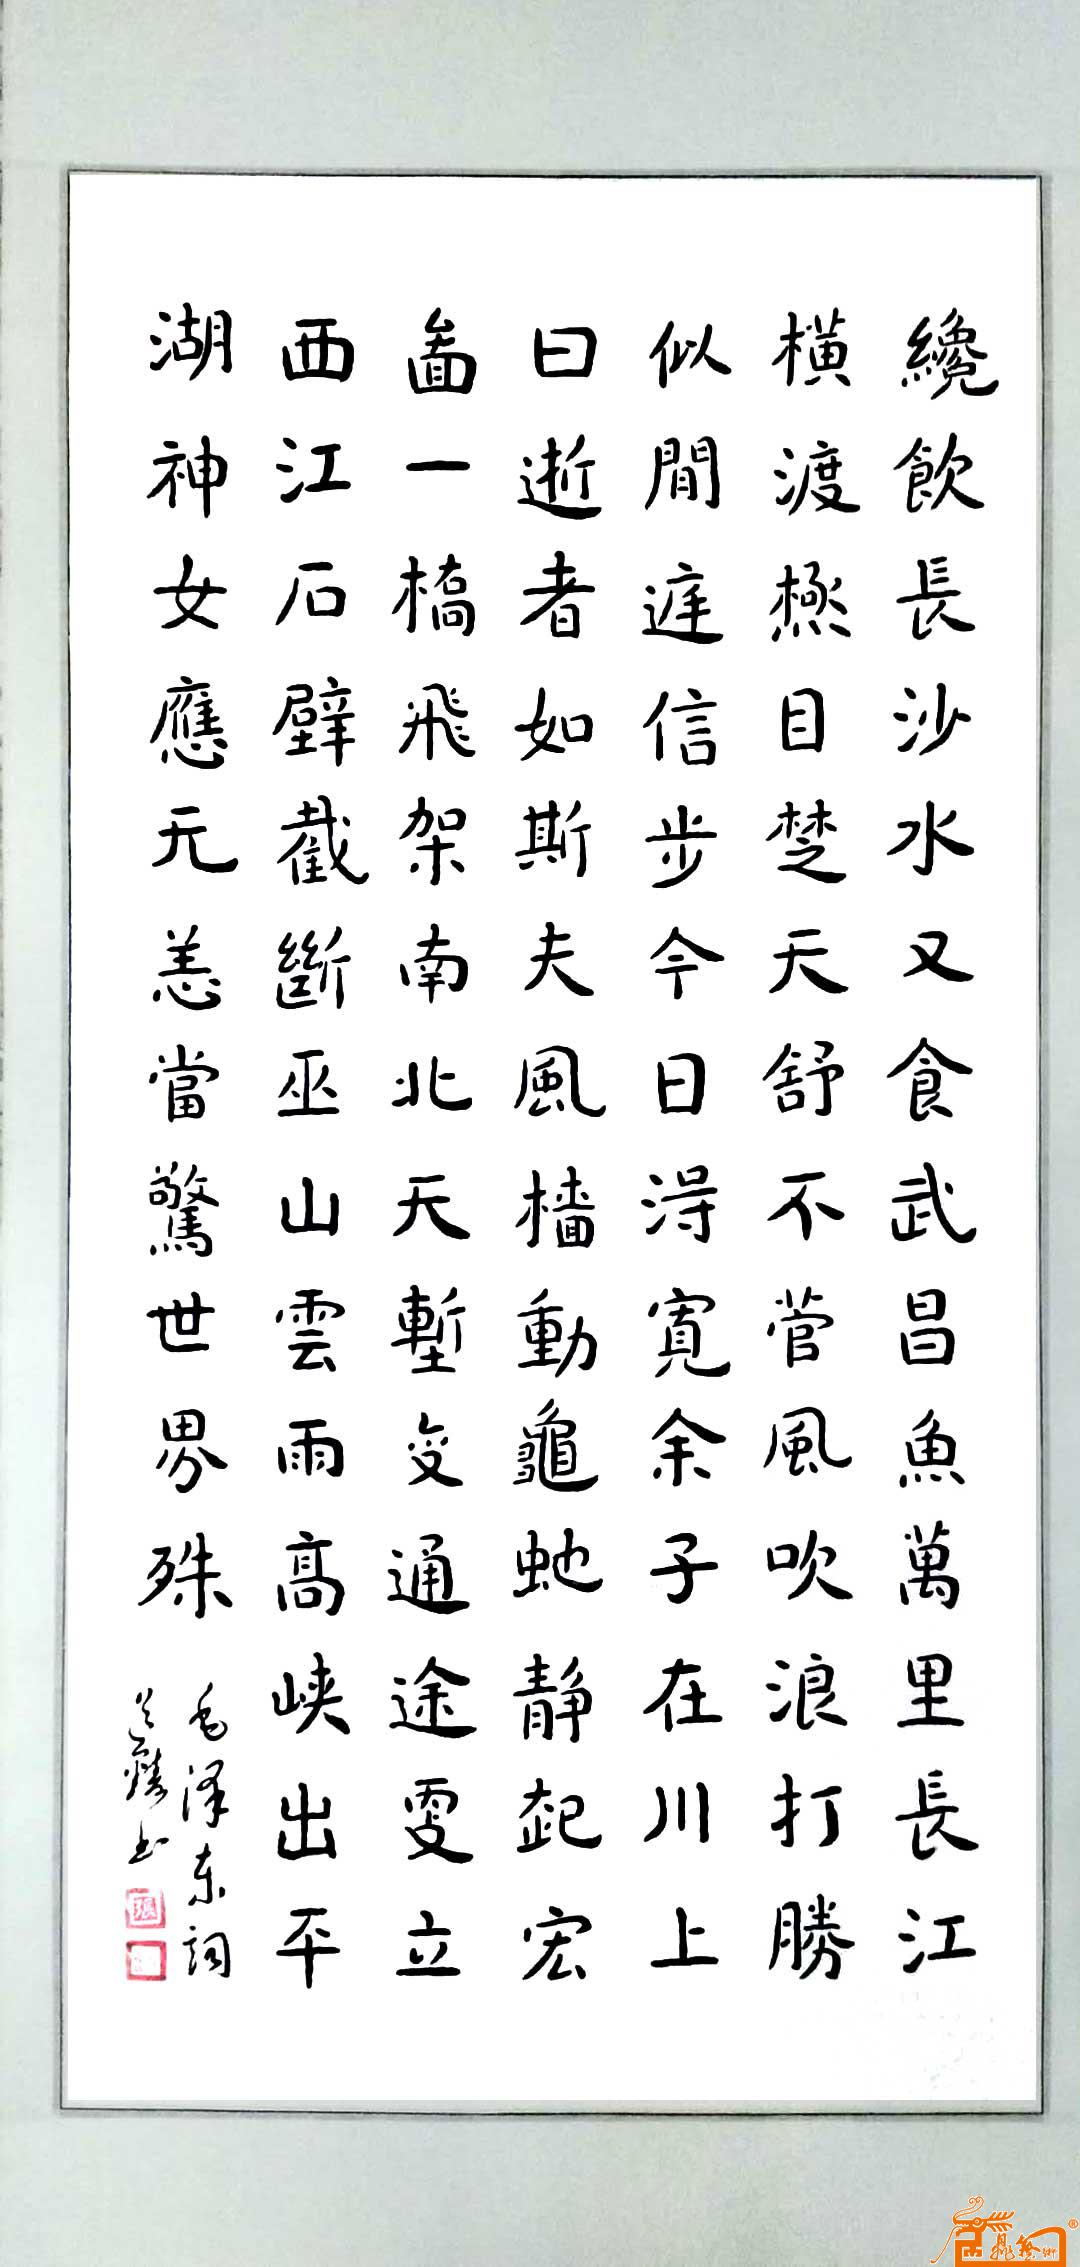 纔飲長沙水又食武昌魚萬里長江
橫渡極目楚天舒不管風吹浪打勝
似閒庭信步今日得寬余子在川上
曰逝者如斯夫風檣動龜虵静起宏
畵一橋飛架南北天塹变通途更立
西江石壁截斷巫山雲雨高峡出平
湖神女應无恙當驚世界殊
毛泽东詞
书
張